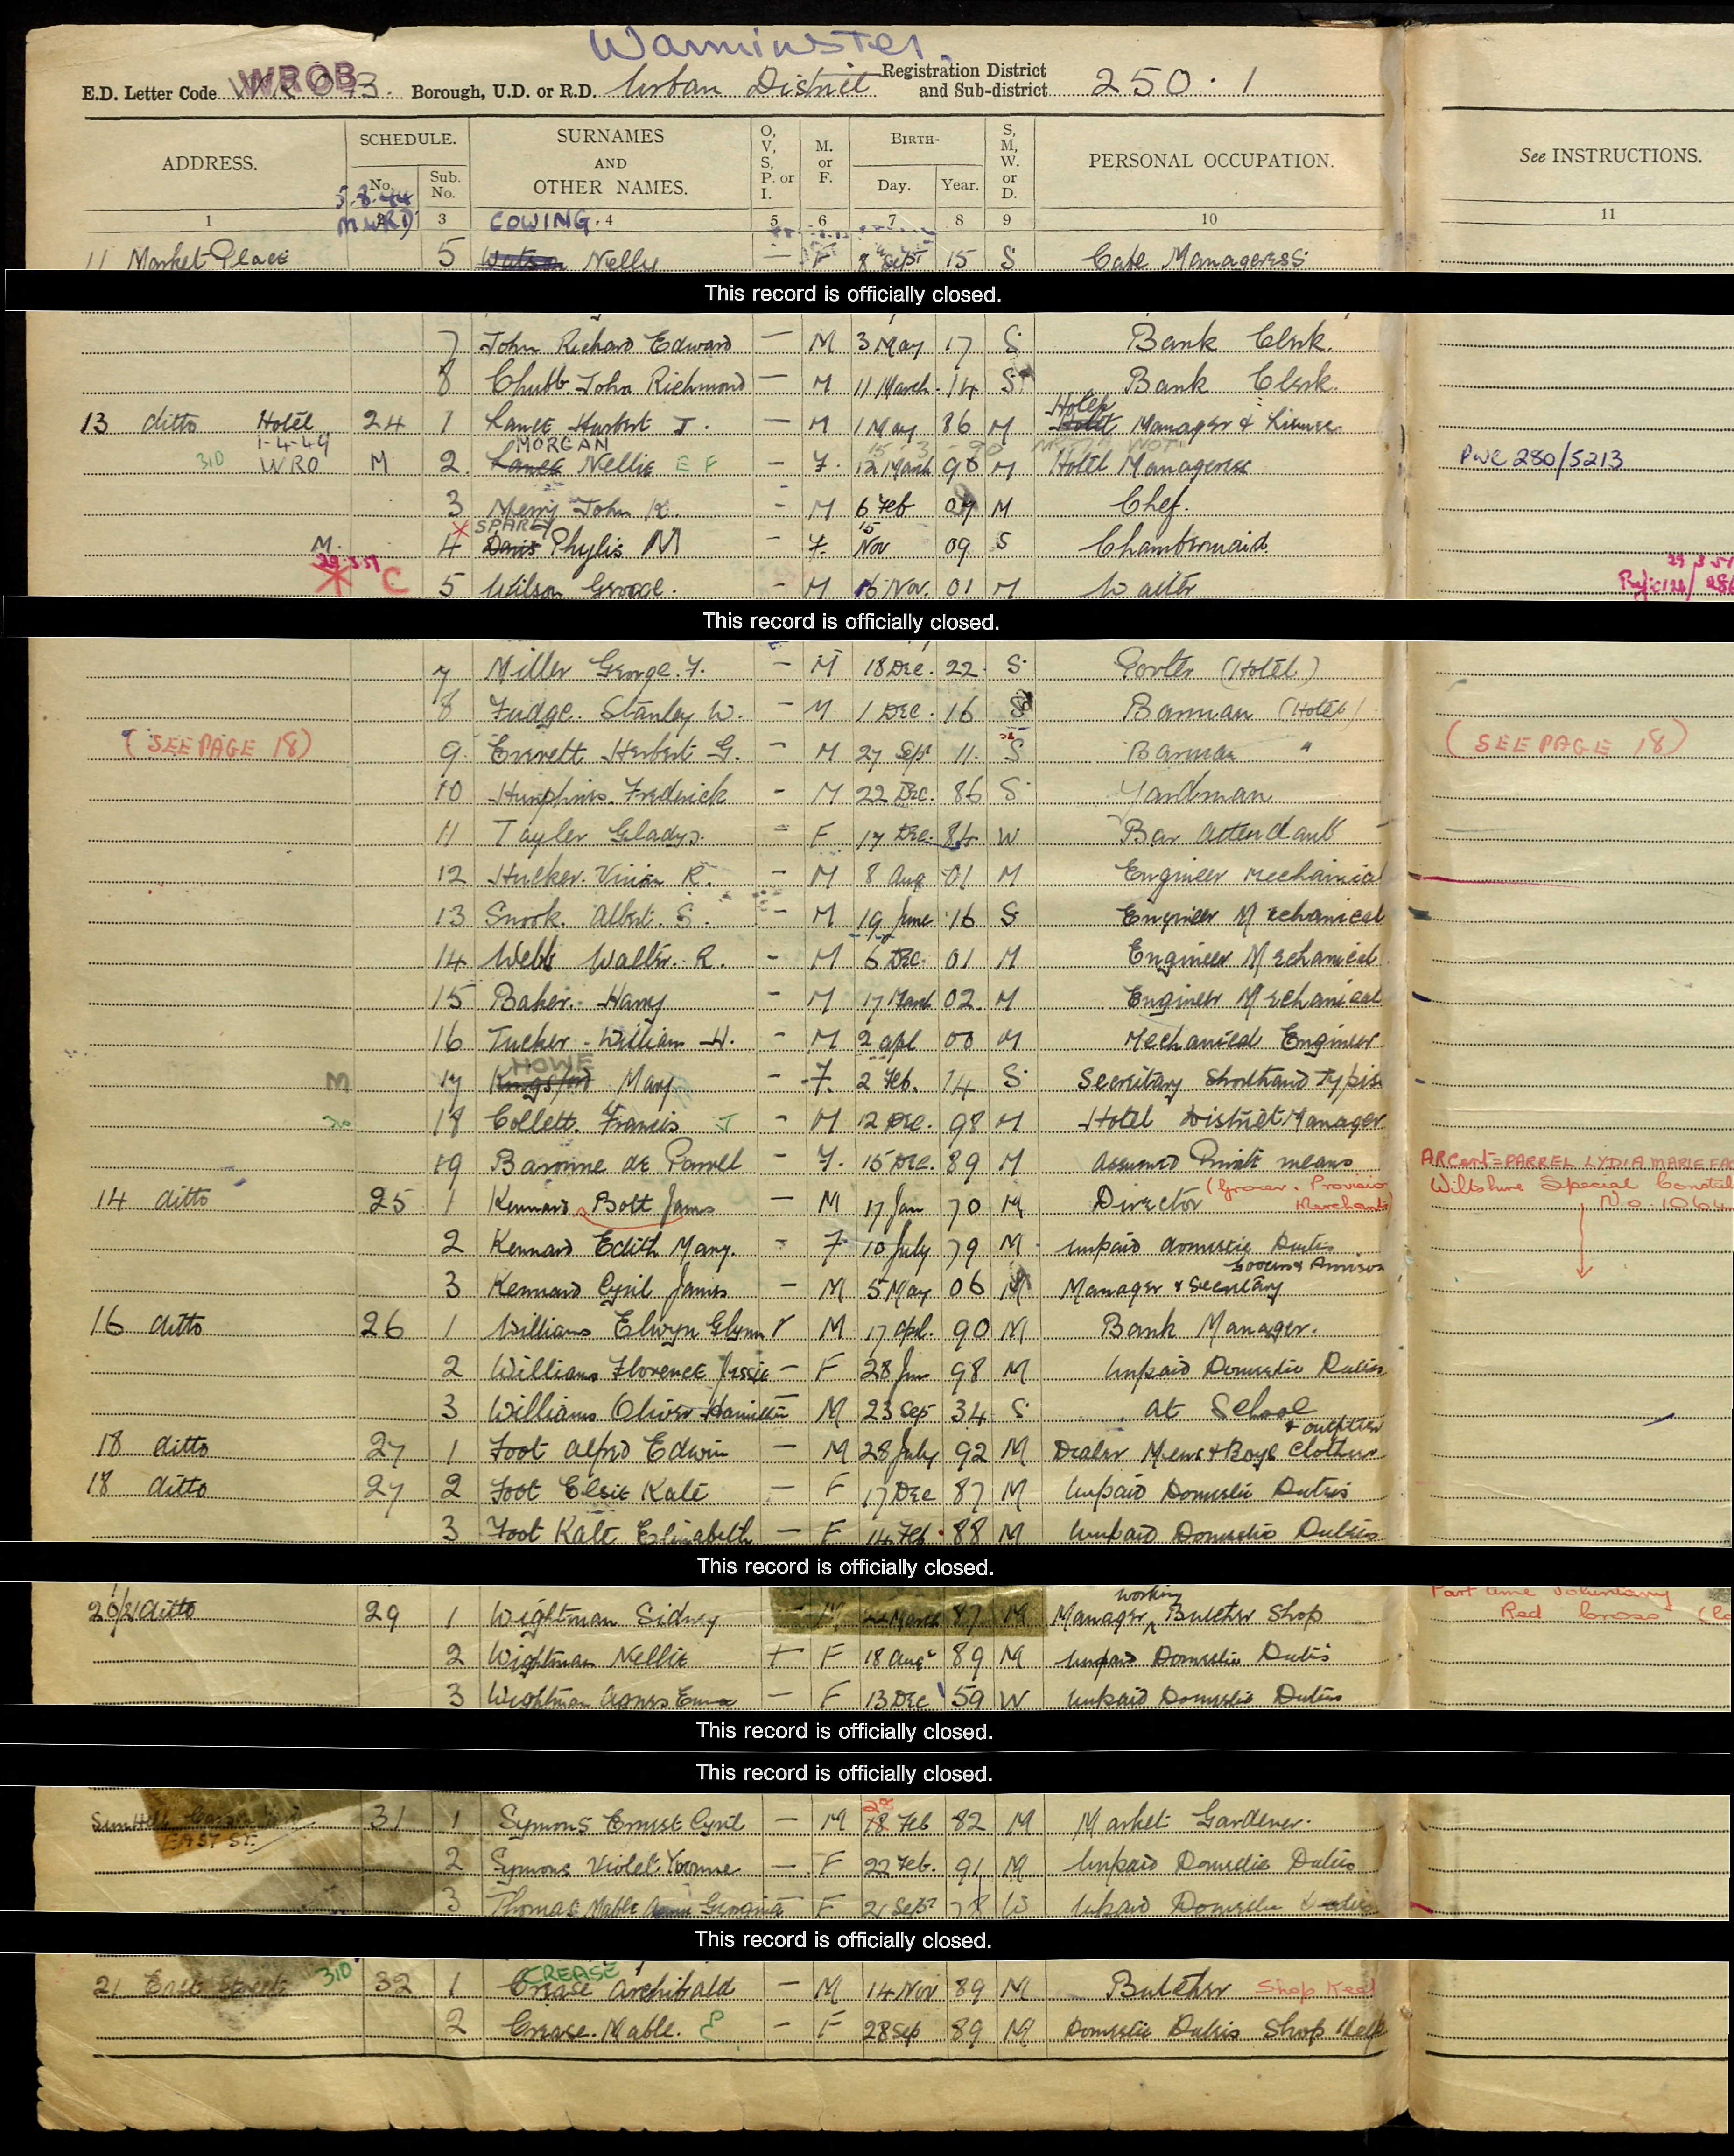 Warminster.
E.D. Letter Code WROB 73. Borough, U.D. or R.D. Urban District Registration District and Sub-district 250.1
ADDRESS. SCHEDULE. SURNAMES AND OTHER NAMES. O, V, S, P. or I. M. or F. BIRTH- S, M, W. or D. PERSONAL OCCUPATION. See INSTRUCTIONS.
No. Sub. No. Day. Year.
5.8.44
1 3 COWING. 4 5 6 7 8 9 10 11
11 Market Place 5 Watson Nellie — F 8 Sept 15 S Cafe Manageress
This record is officially closed.
7 John Richard Edward — M 3 May 17 S Bank Clerk.
8 Chubb John Richmond — M 11 March 14 S Bank Clerk.
13 ditto Hotel 24 1 Lance Herbert J. — M 1 May 86 M Hotel Manager & Licence
1-4-49 MORGAN
310 WRO M 2 Lance Nellie E F — F. 12 March 90 M Hotel Manageress PWC 280/5213
3 Merry John K. — M 6 Feb 09 M Chef.
SPAREY 15
M. 4 Davis Phylis M — F. Nov 09 S Chambermaid.
29.3.51 C 5 Wilson George. — M 16 Nov. 01 M Waiter 29 3 51
This record is officially closed.
7 Miller George. F. — M 18 Dec. 22 S Porter (Hotel)
8 Fudge. Stanley W. — M 1 Dec. 16 S Barman (Hotel)
(SEE PAGE 18) 9. Everett Herbert G. — M 27 Sept 11. S Barman " (SEE PAGE 18)
10 Humphries. Frederick — M 22 Dec. 86 S Yardman
11 Tayler Gladys. — F 17 Dec. 84 W Bar attendant
12 Hucker. Vivian R. — M 8 Aug 01 M Engineer Mechanical
13 Snook. Albert. S. — M 19 June 16 S Engineer Mechanical
14 Webb Walter. R. — M 6 Dec. 01 M Engineer Mechanical
15 Baker. Harry — M 17 March 02. M Engineer Mechanical
16 Tucker - William H. — M 2 Apl 00 M Mechanical Engineer
HOWE
M 17 Kingsford Mary — F. 2 Feb. 14 S Secretary Shorthand Typis
18 Collett. Francis J — M 12 Dec. 98 M Hotel District Manager
19 Baronne de Parrel — F. 15 Dec. 89 M Assumed Private means ARCert=PARREL LYDIA MARIE
14 ditto 25 1 Kennard Bolt James — M 17 Jan 70 M Director (Grocer. Provision Merchants) Wiltshire Special Constab No. 1064
2 Kennard Edith Mary. — F 10 July 79 M. Unpaid domestic Duties
3 Kennard Cyril James — M 5 May 06 M Manager & Secretary
16 ditto 26 1 Williams Elwyn Glynn V M 17 Apl. 90 M Bank Manager.
2 Williams Florence Jessie — F 28 Jun 98 M Unpaid Domestic Duties
3 Williams Oliver Hamilton — M 23 Sep 34 S at School
18 ditto 27 1 Foot Alfred Edwin — M 28 July 92 M Dealer Mens & Boys Clothier & outfitter
18 ditto 27 2 Foot Elsie Kate — F 17 Dec 87 M Unpaid Domestic Duties
3 Foot Kate Elizabeth — F 14 Feb. 88 M Unpaid Domestic Duties
This record is officially closed.
20/21 ditto 29 1 Wightman Sidney — M March 87 M Manager working Butcher Shop Part time Voluntary Red Cross
2 Wightman Nellie + F 18 Aug 89 M Unpaid Domestic Duties
3 Wightman Agnes Emma — F 13 Dec 59 W Unpaid Domestic Duties
This record is officially closed.
This record is officially closed.
EAST ST. 31 1 Symons Ernest Cyril — M 18 28 Feb 82 M Market Gardener.
2 Symons Violet Yvonne — F 22 Feb. 91 M Unpaid Domestic Duties
3 Thomas Mable Georgina — F 21 Sept 78 W Unpaid Domestic Duties
This record is officially closed.
CREASE
21 East Street 310 32 1 Crease Archibald — M 14 Nov 89 M Butcher Shop Keep
2 Crease. Mable. E — F 28 Sep 89 M Domestic Duties Shop Help